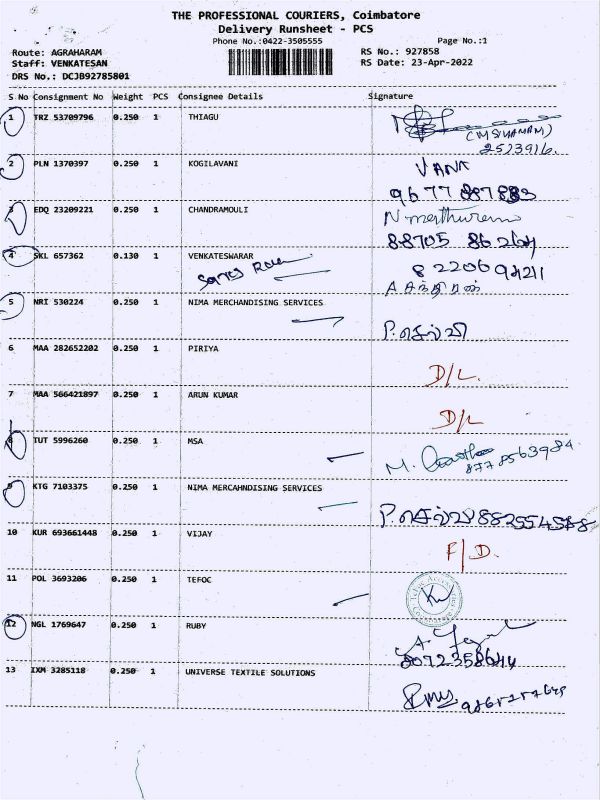 THE PROFESSIONAL COURIERS, Coimbatore
Delivery Runsheet - PCS
Phone No.:0422-3505555 Page No.:1
Route: AGRAHARAM RS No.: 927858
Staff: VENKATESAN RS Date: 23-Apr-2022
DRS No.: DCJB92785801
S No Consignment No Weight PCS Consignee Details Signature
1 TRZ 53709796 0.250 1 THIAGU
2 PLN 1370397 0.250 1 KOGILAVANI
3 EDQ 23209221 0.250 1 CHANDRAMOULI
4 SKL 657362 0.130 1 VENKATESWARAR
5 NRI 530224 0.250 1 NIMA MERCHANDISING SERVICES
P. செல்வி
6 MAA 282652202 0.250 1 PIRIYA
D/L.
7 MAA 566421897 0.250 1 ARUN KUMAR
D/L
8 TUT 5996260 0.250 1 MSA
9 KTG 7103375 0.250 1 NIMA MERCAHNDISING SERVICES
P. செல்வி
10 KUR 693661448 0.250 1 VIJAY
F/D.
11 POL 3693206 0.250 1 TEFOC
12 NGL 1769647 0.250 1 RUBY
13 IXM 3285118 0.250 1 UNIVERSE TEXTILE SOLUTIONS